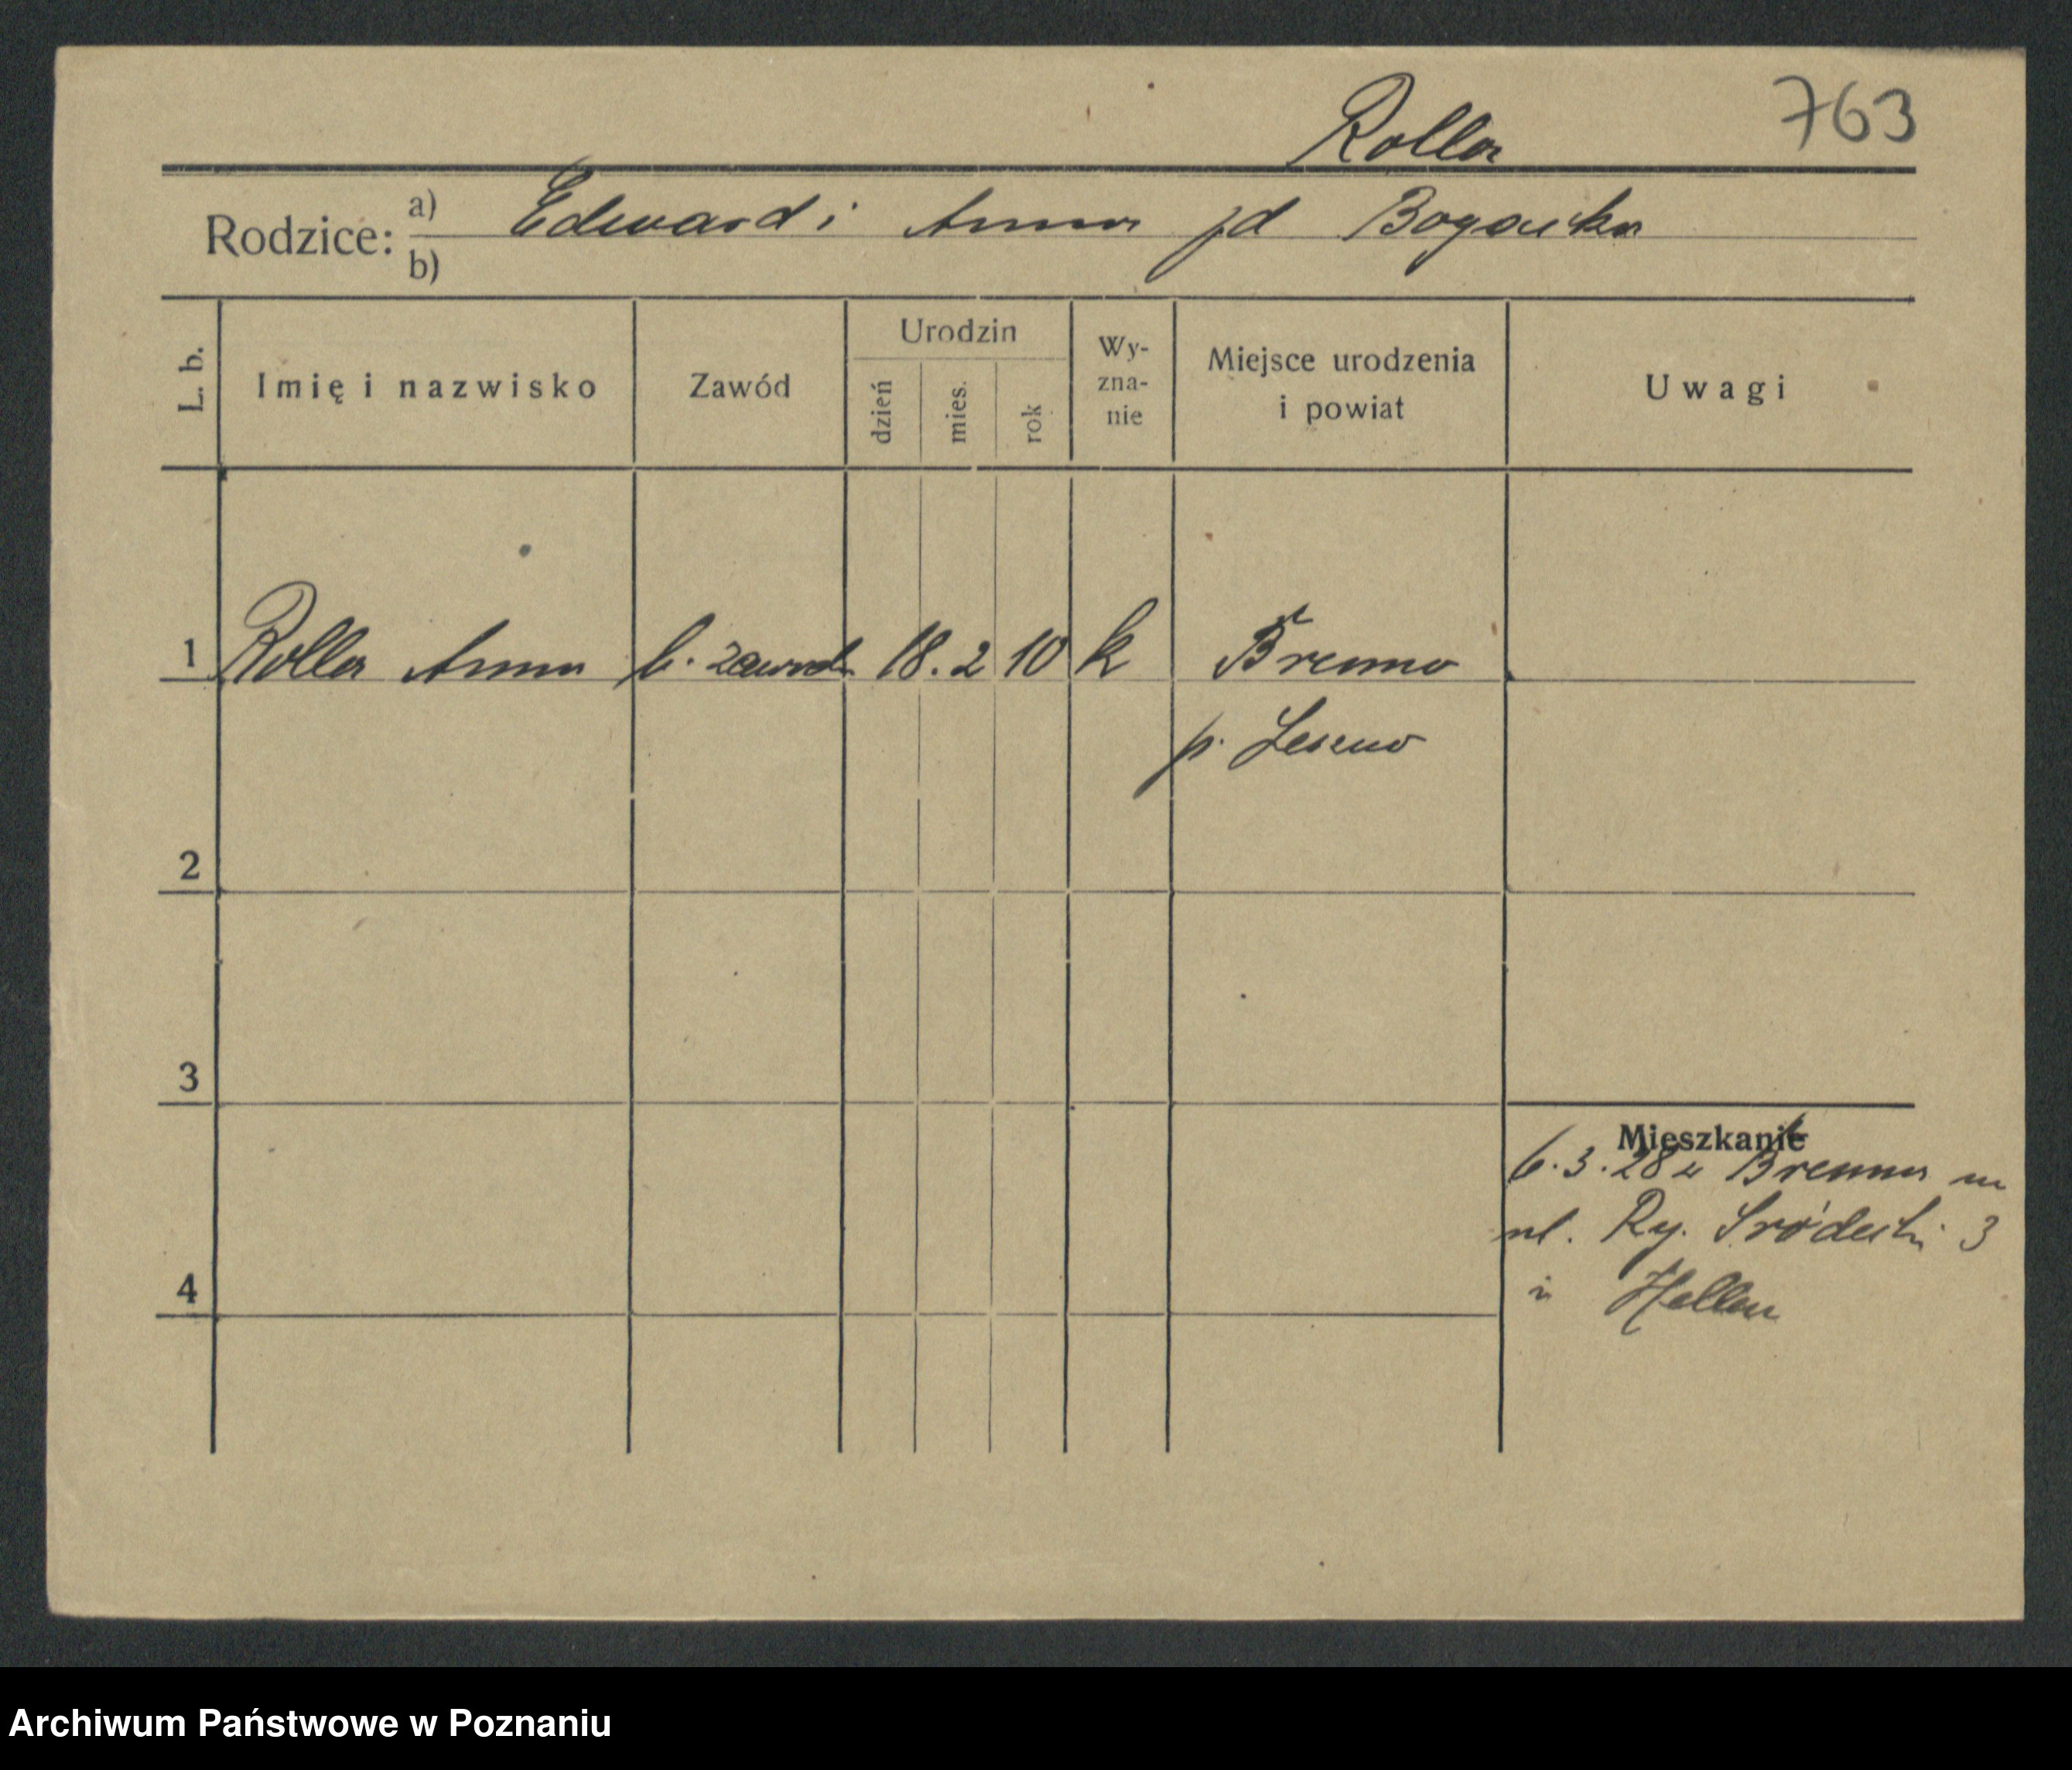 Rolla 763
Rodzice: a) Edward i Anna zd Bogacka
b)
L. b. Imię i nazwisko Zawód Urodzin dzień mies. rok Wy-zna-nie Miejsce urodzenia i powiat Uwagi
1 Rolla Anna b. zawodu 18. 2 10 k Brenno
p. Leszno
2
3
Mieszkanie
6.3.28 z Brenna
ul. Ry. Śródecki 3
4
Archiwum Państwowe w Poznaniu